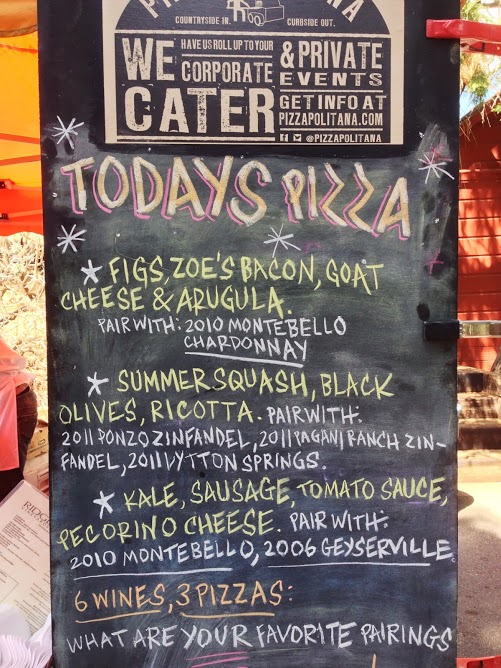 COUNTRYSIDE IN. CURBSIDE OUT.
WE HAVE US ROLL UP TO YOUR & PRIVATE
CORPORATE EVENTS
CATER GET INFO AT
PIZZAPOLITANA.COM
@PIZZAPOLITANA
TODAYS PIZZA
FIGS, ZOE'S BACON, GOAT
CHEESE & ARUGULA.
PAIR WITH: 2010 MONTEBELLO
CHARDONNAY
SUMMER SQUASH, BLACK
OLIVES, RICOTTA. PAIR WITH:
2011 PONZO ZINFANDEL, 2011 PAGANI RANCH ZIN-
FANDEL, 2011 LYTTON SPRINGS.
KALE, SAUSAGE, TOMATO SAUCE,
PECORINO CHEESE. PAIR WITH:
2010 MONTEBELLO, 2006 GEYSERVILLE
6 WINES, 3 PIZZAS:
WHAT ARE YOUR FAVORITE PAIRINGS
RIDGE